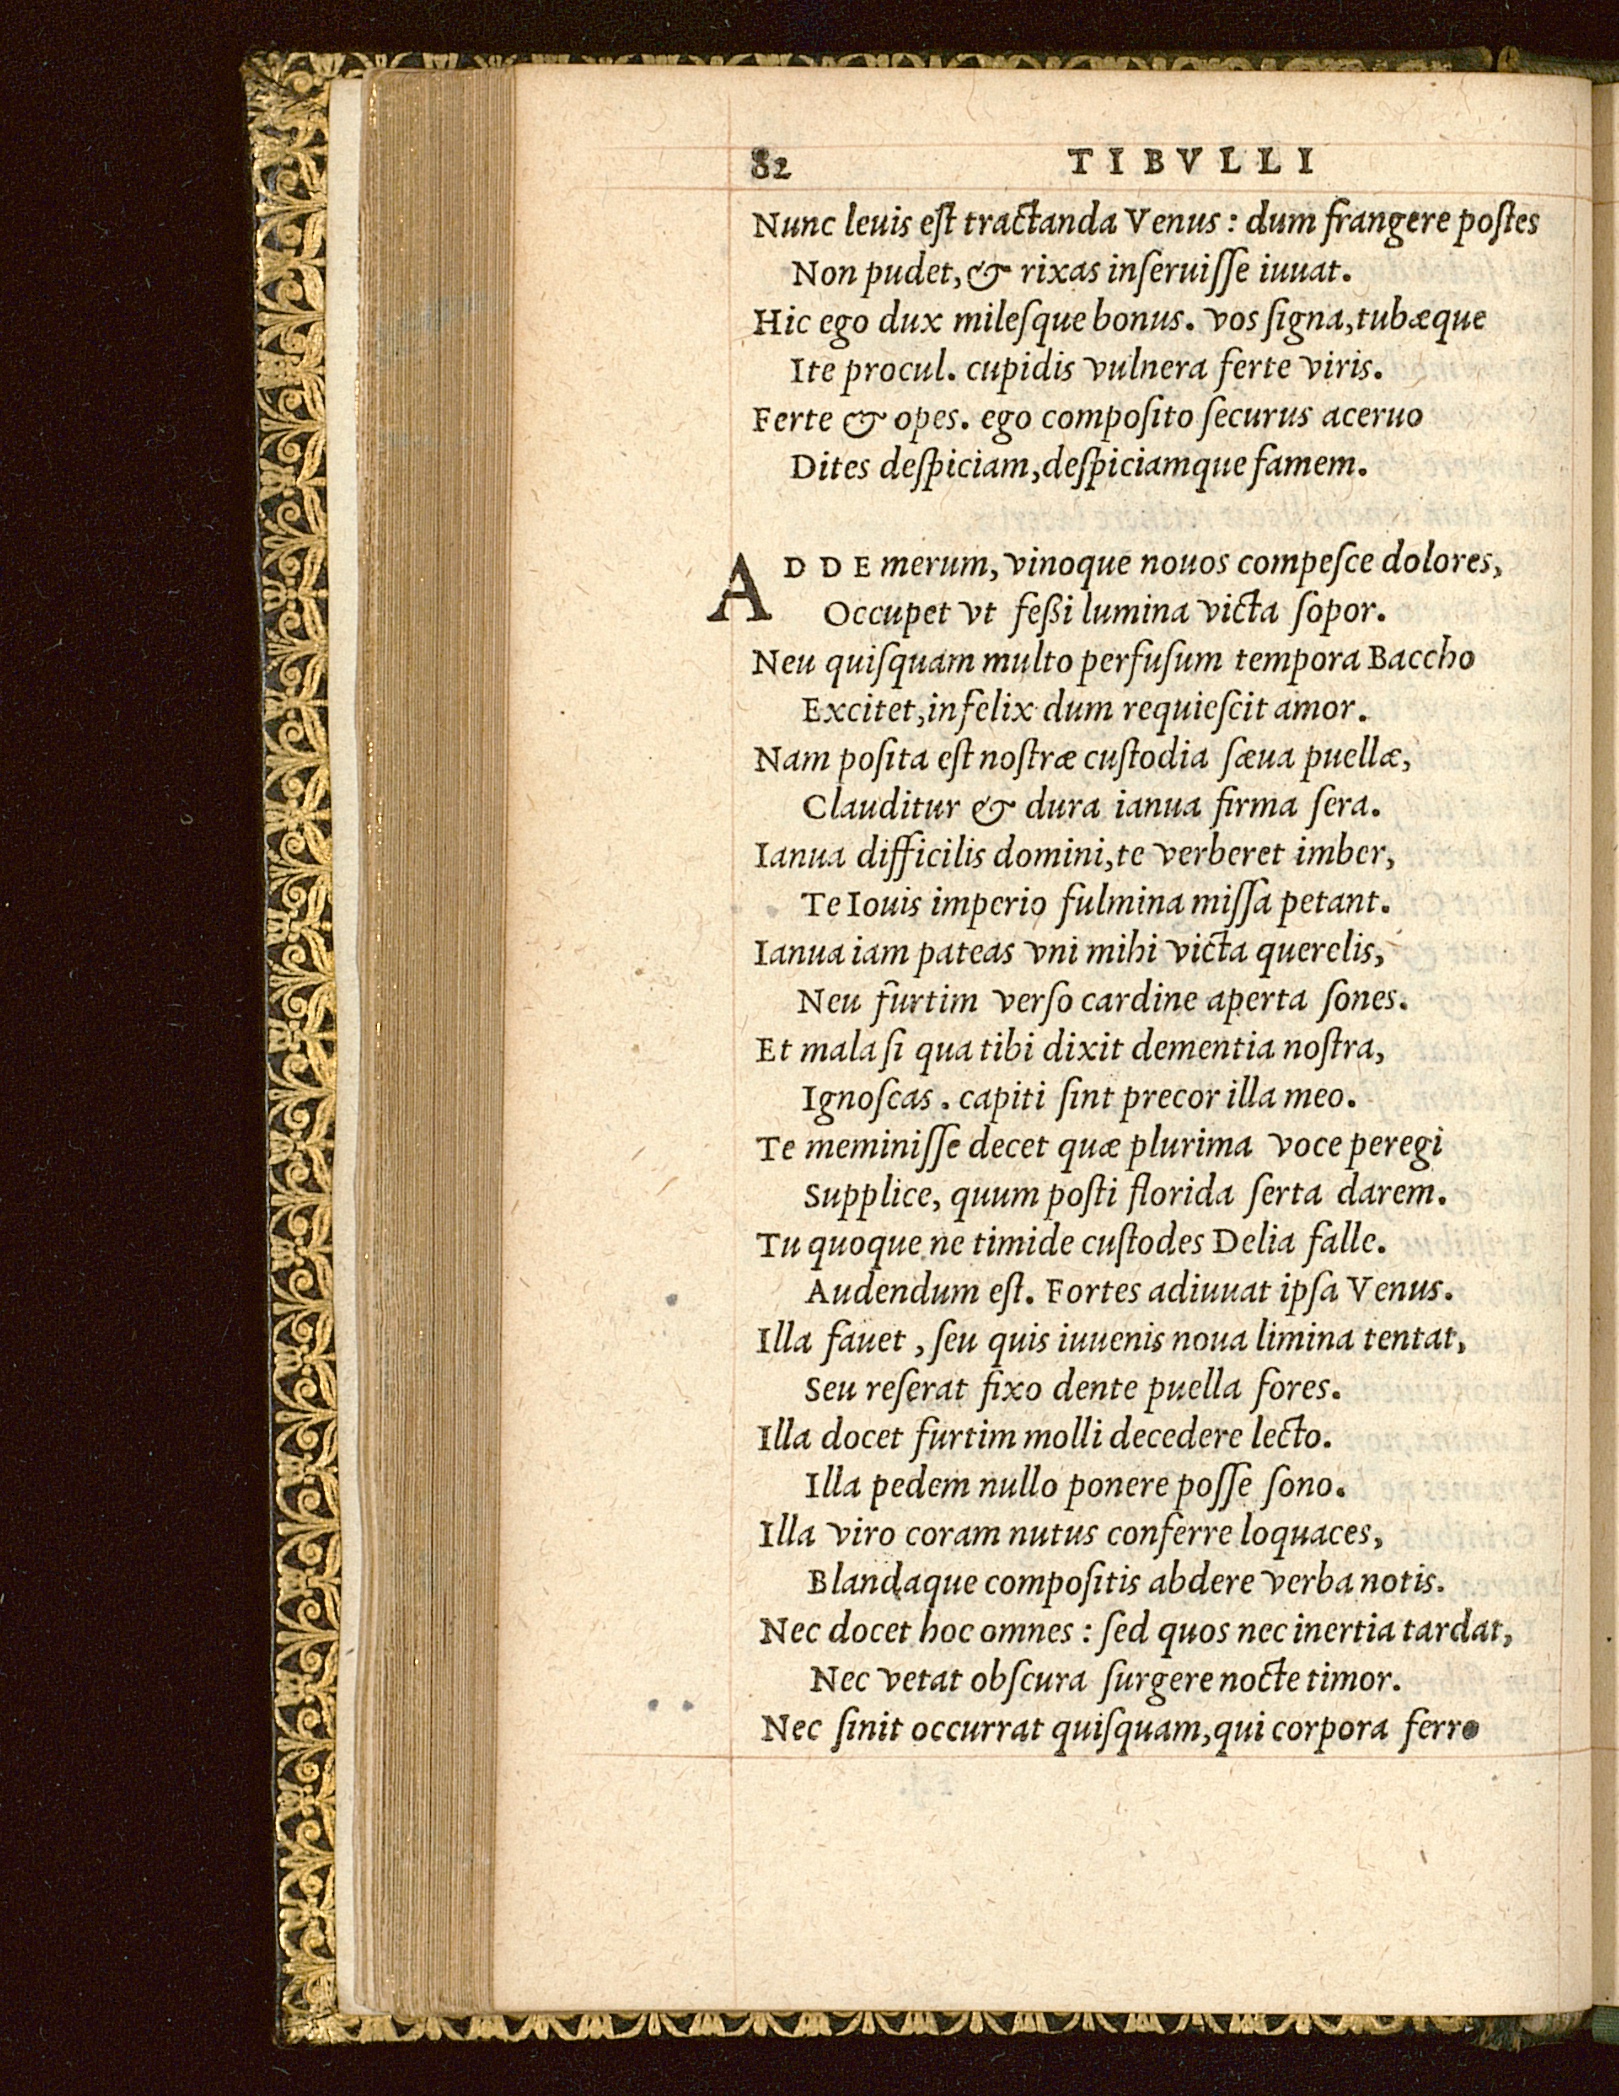 82 TIBVLLI
Nunc leuis eſt tractanda Venus : dum frangere poſtes
Non pudet, & rixas inſeruiſſe iuuat.
Hic ego dux mileſque bonus. vos ſigna, tubæque
Ite procul. cupidis vulnera ferte viris.
Ferte & opes. ego compoſito ſecurus aceruo
Dites deſpiciam, deſpiciamque famem.
ADDE merum, vinoque nouos compeſce dolores,
Occupet vt feßi lumina victa ſopor.
Neu quiſquam multo perfuſum tempora Baccho
Excitet, infelix dum requieſcit amor.
Nam poſita eſt noſtræ cuſtodia ſæua puellæ,
Clauditur & dura ianua firma ſera.
Ianua difficilis domini, te verberet imber,
Te Iouis imperio fulmina miſſa petant.
Ianua iam pateas vni mihi victa querelis,
Neu furtim verſo cardine aperta ſones.
Et mala ſi qua tibi dixit dementia noſtra,
Ignoſcas . capiti ſint precor illa meo.
Te meminiſſe decet quæ plurima voce peregi
Supplice, quum poſti florida ſerta darem.
Tu quoque ne timide cuſtodes Delia falle.
Audendum eſt. Fortes adiuuat ipſa Venus.
Illa fauet , ſeu quis iuuenis noua limina tentat,
Seu reſerat fixo dente puella fores.
Illa docet furtim molli decedere lecto.
Illa pedem nullo ponere poſſe ſono.
Illa viro coram nutus conferre loquaces,
Blandaque compoſitis abdere verba notis.
Nec docet hoc omnes : ſed quos nec inertia tardat,
Nec vetat obſcura ſurgere nocte timor.
Nec ſinit occurrat quiſquam, qui corpora ferro